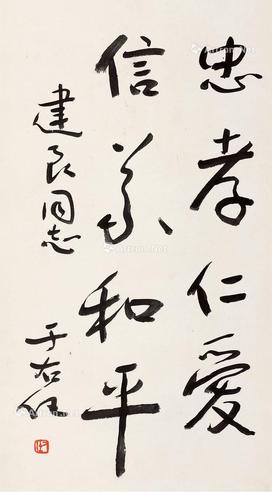 忠孝仁爱
信义和平
建良同志
于右任